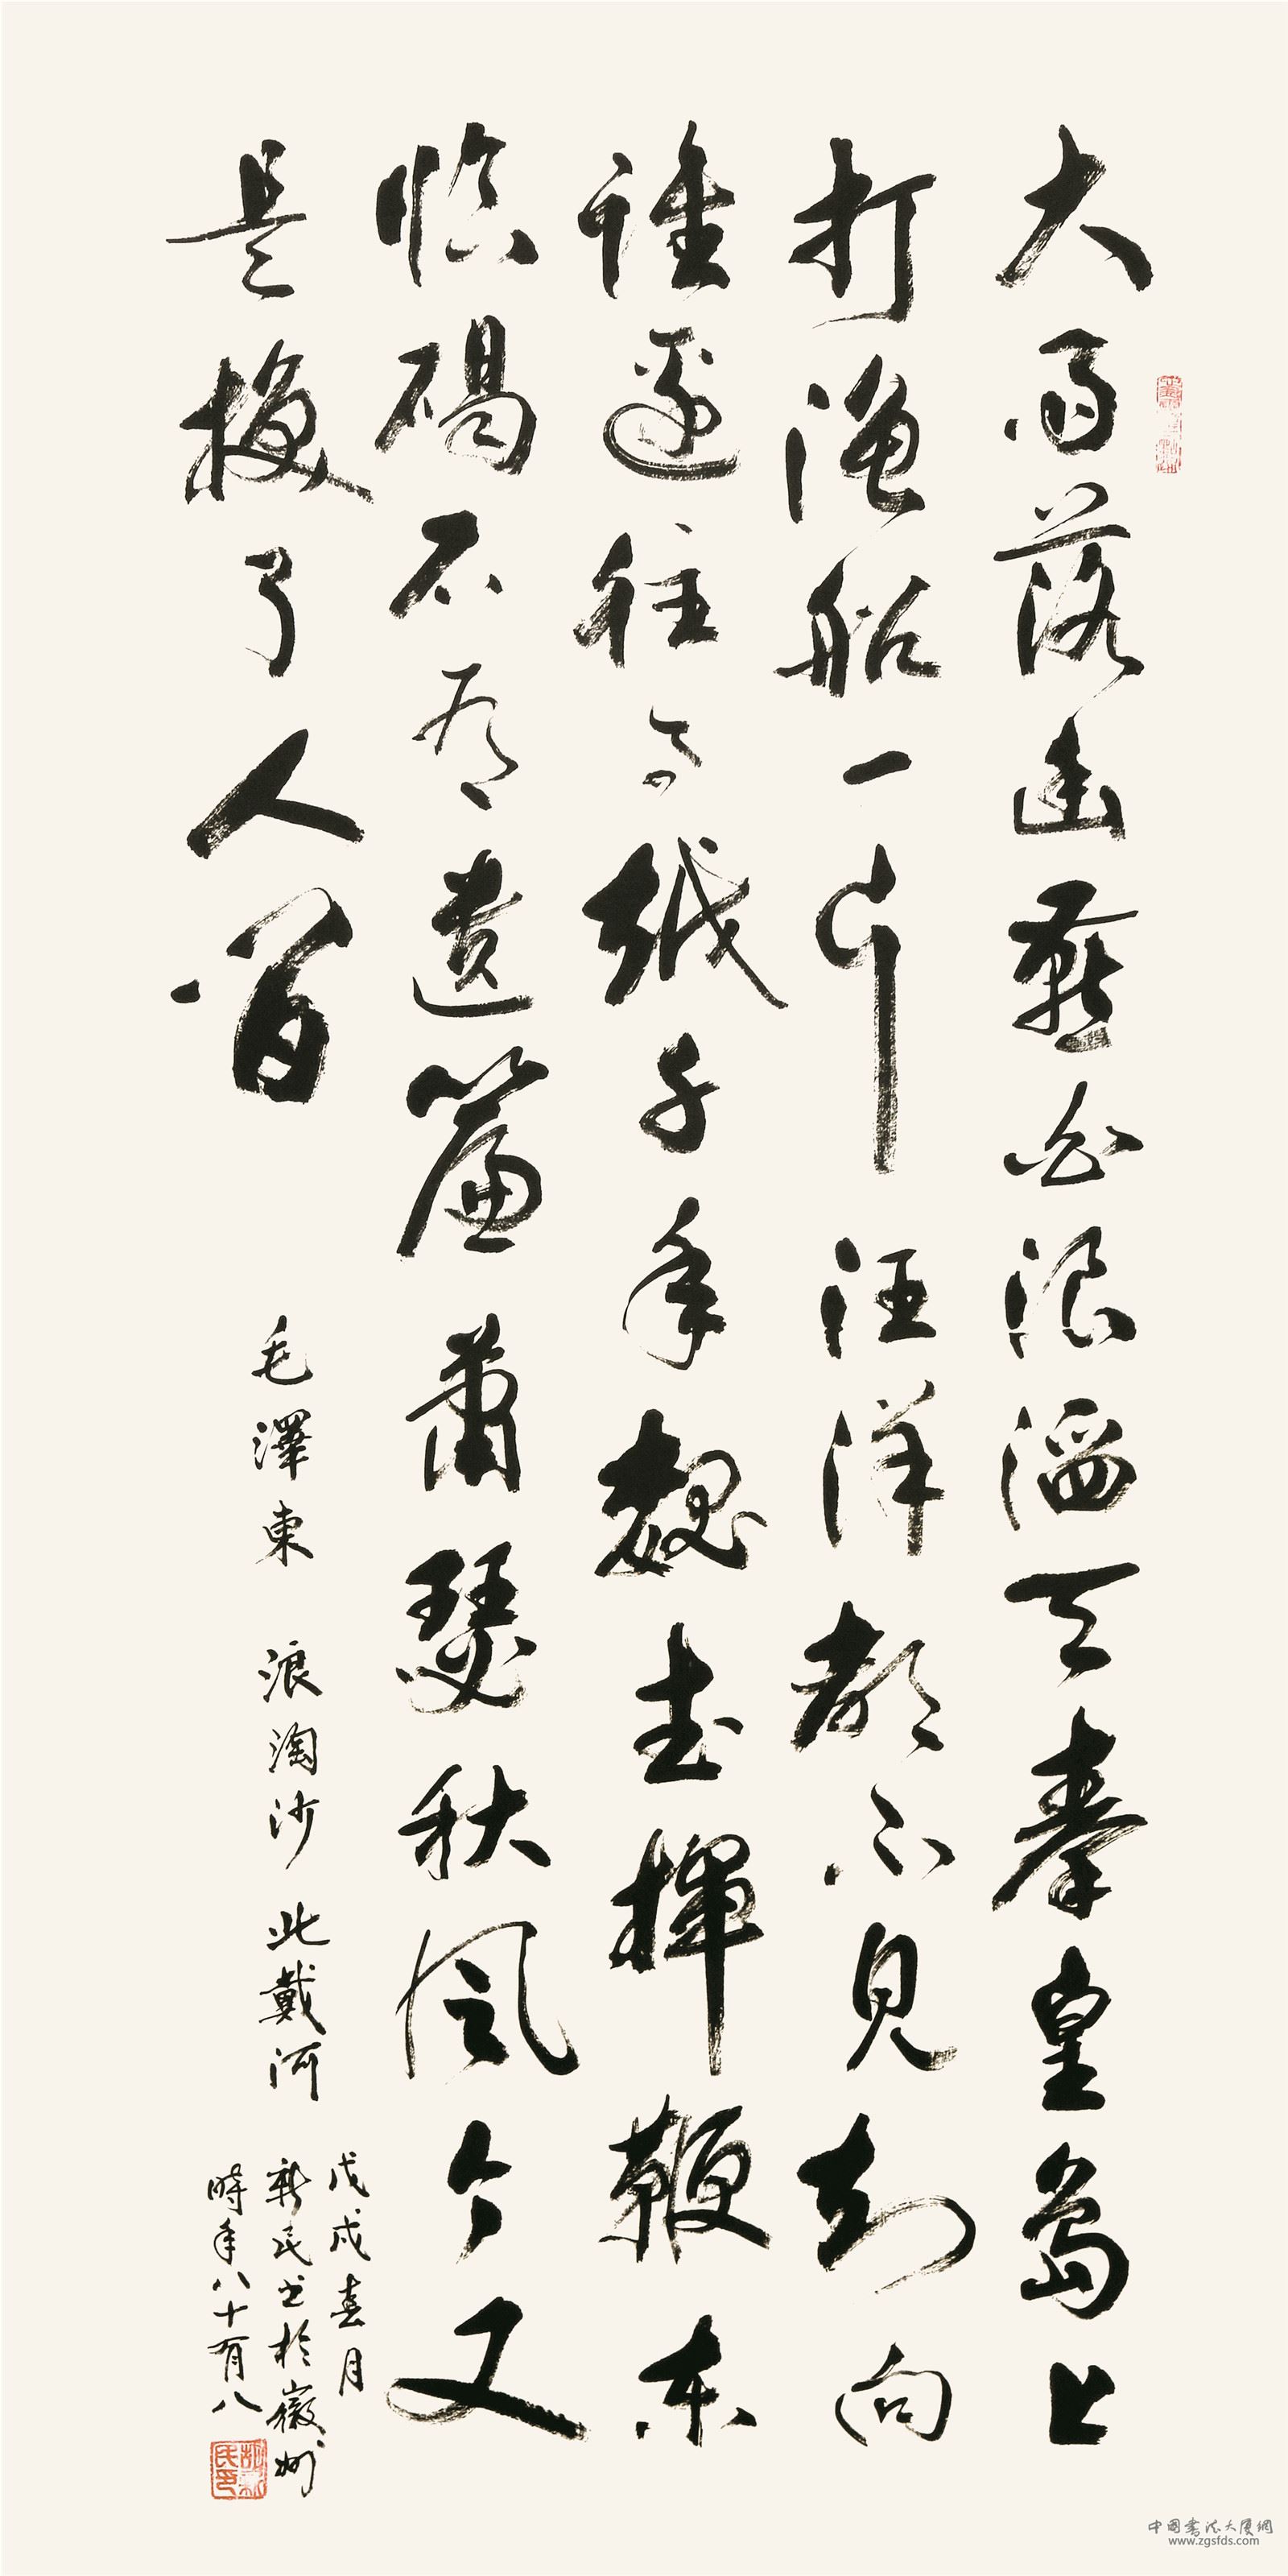 大雨落幽燕白浪滔天秦皇島上
打漁船一片汪洋都不見知向
誰邊往事越千年魏武揮鞭東
臨碣石有遺篇蕭瑟秋風今又
是換了人間
毛澤東 浪淘沙 北戴河
戊戌春月
新民书於徽州
時年八十有八
胡新民印
中国書法大厦網
www.zgsfds.com